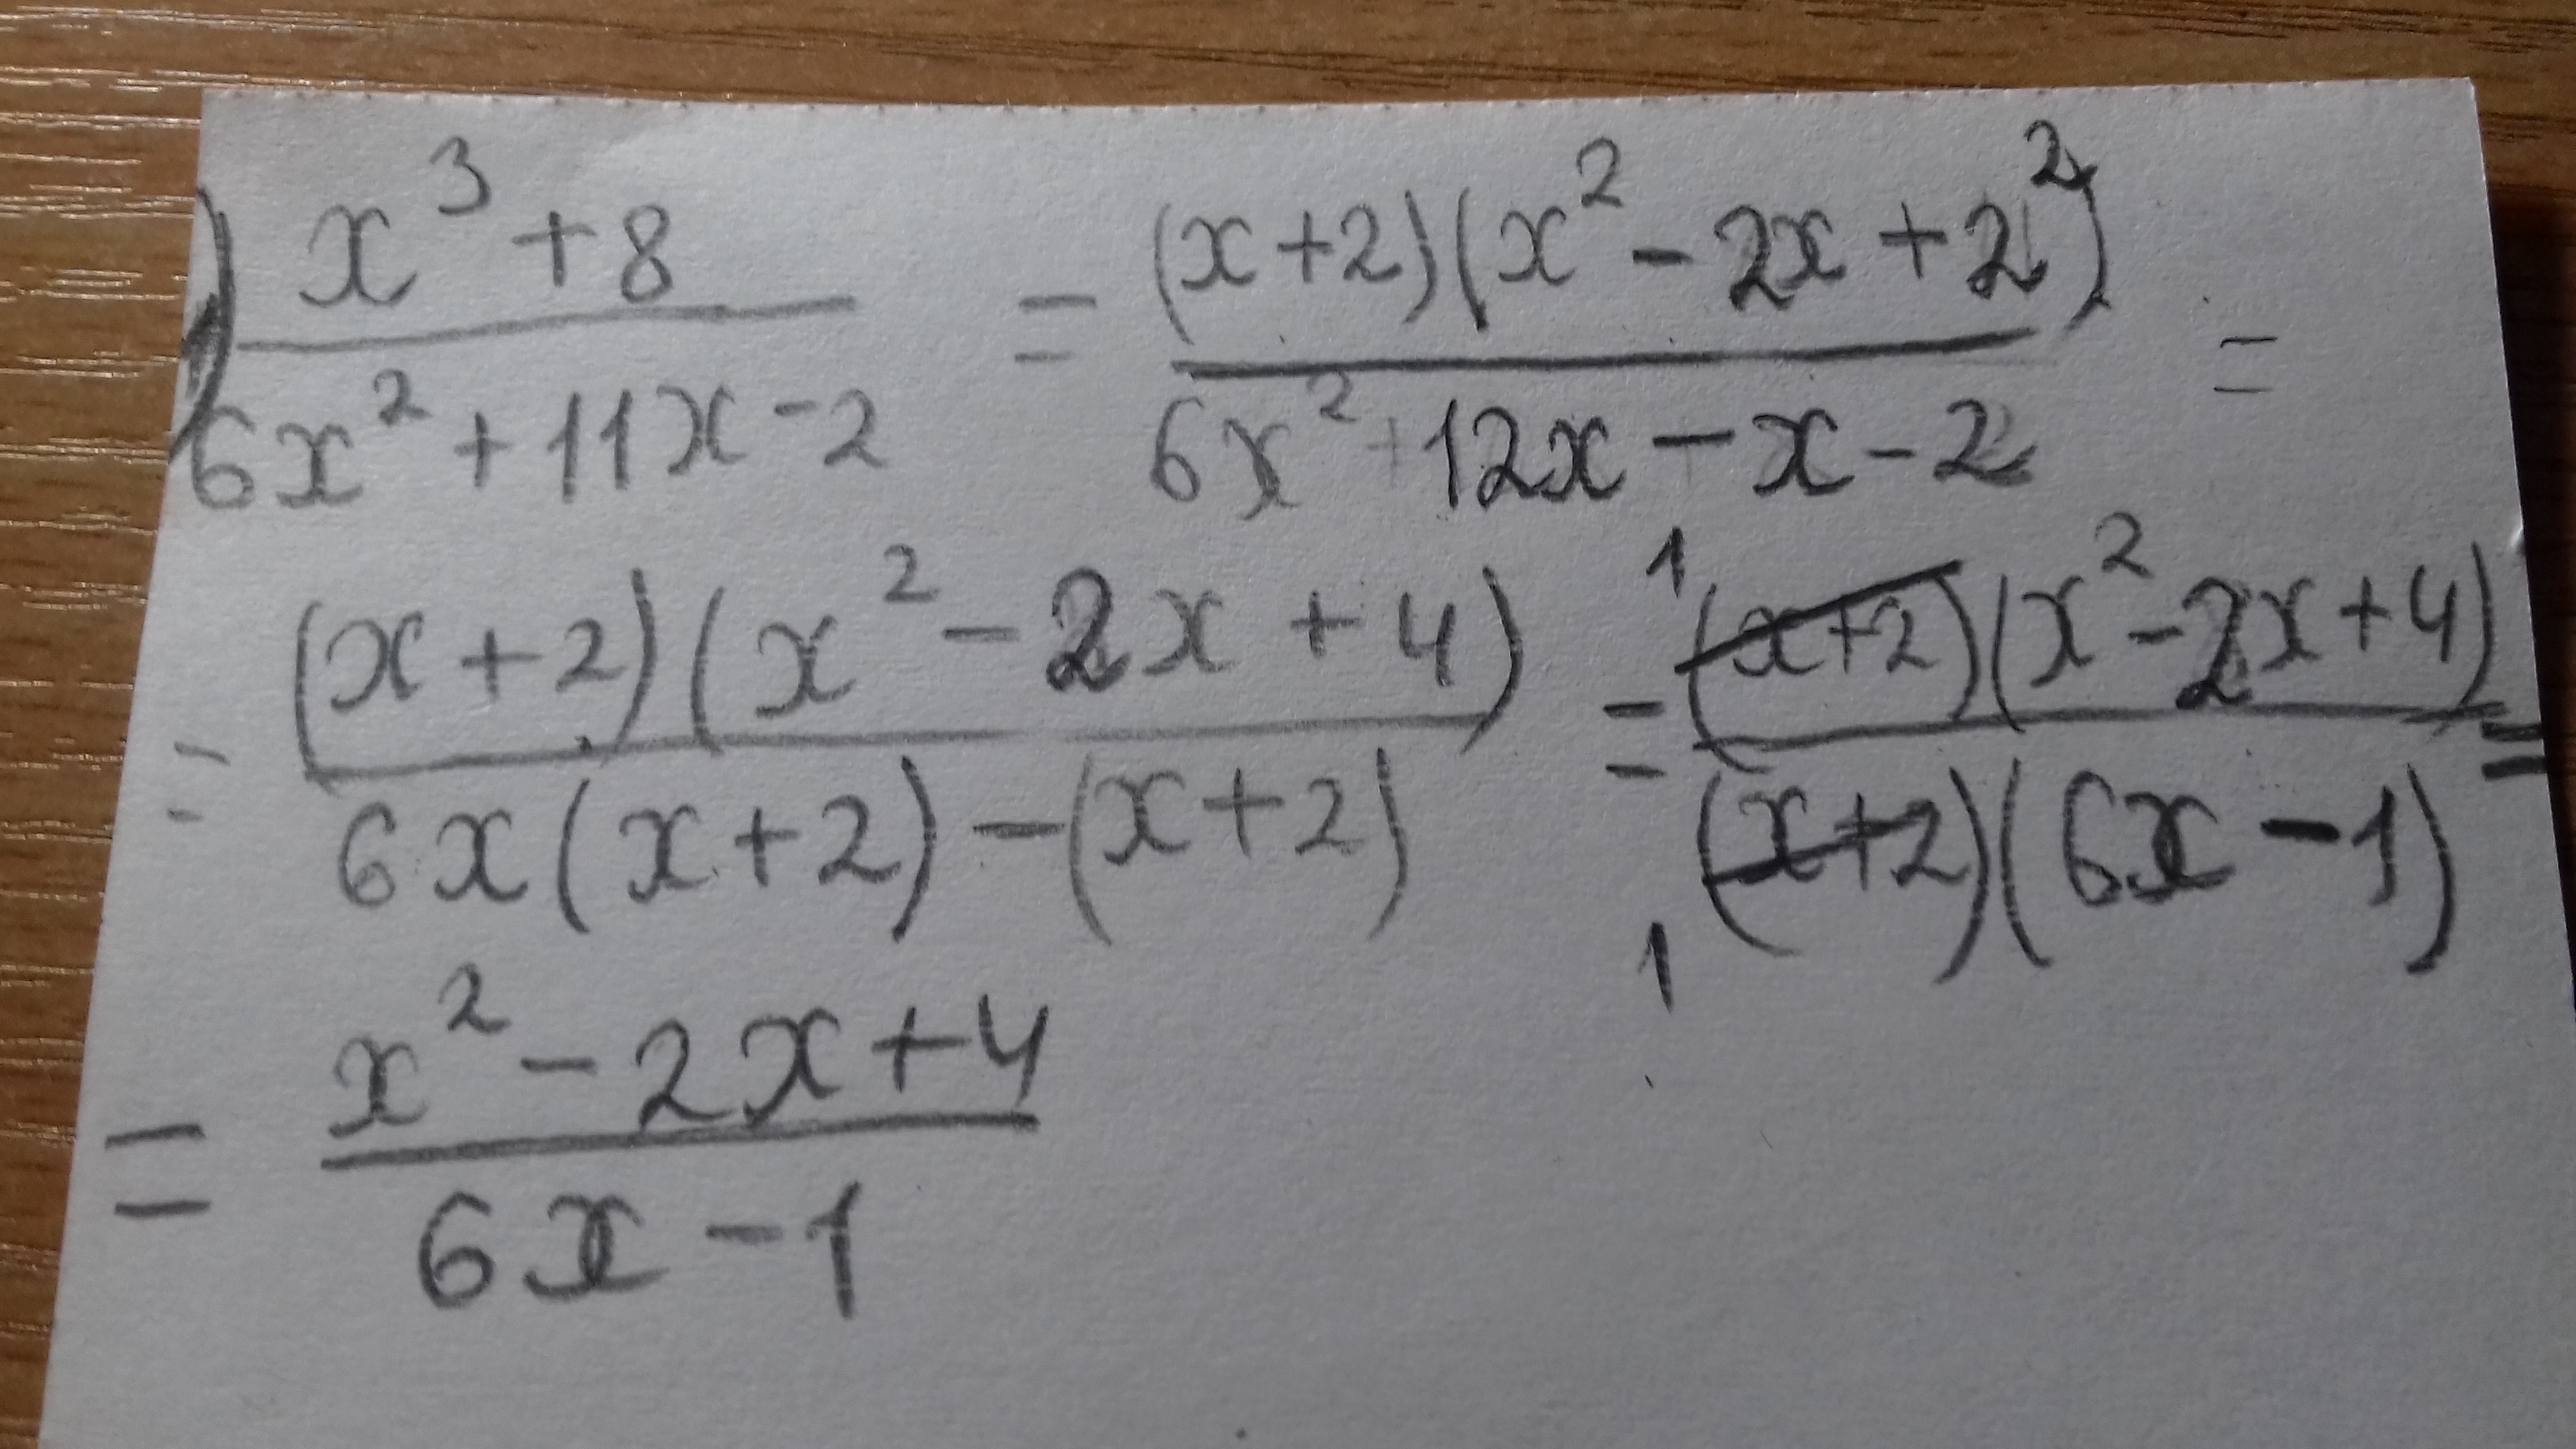 x³+8 / 6x²+11x-2 = (x+2)(x²-2x+2²) / 6x²+12x-x-2 =
= (x+2)(x²-2x+4) / 6x(x+2)-(x+2) = 1 (x+2)(x²-2x+4) / 1 (x+2)(6x-1) =
= x²-2x+4 / 6x-1